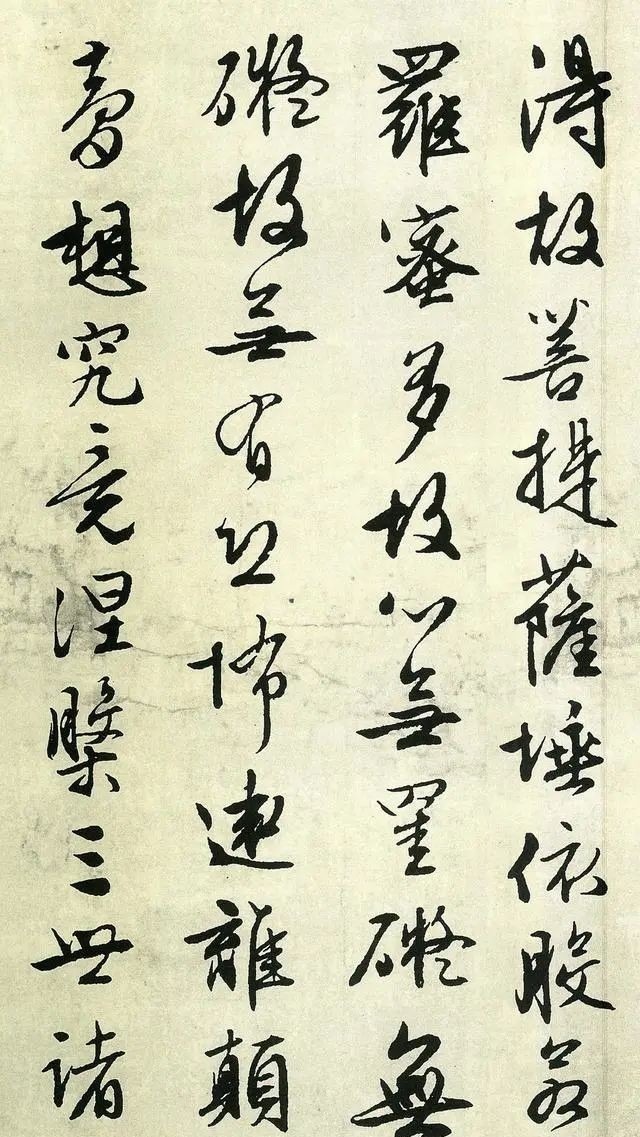 得故菩提薩埵依般若
羅蜜多故心無罣礙無
礙故無有恐怖遠離顛
夢想究竟涅槃三世諸